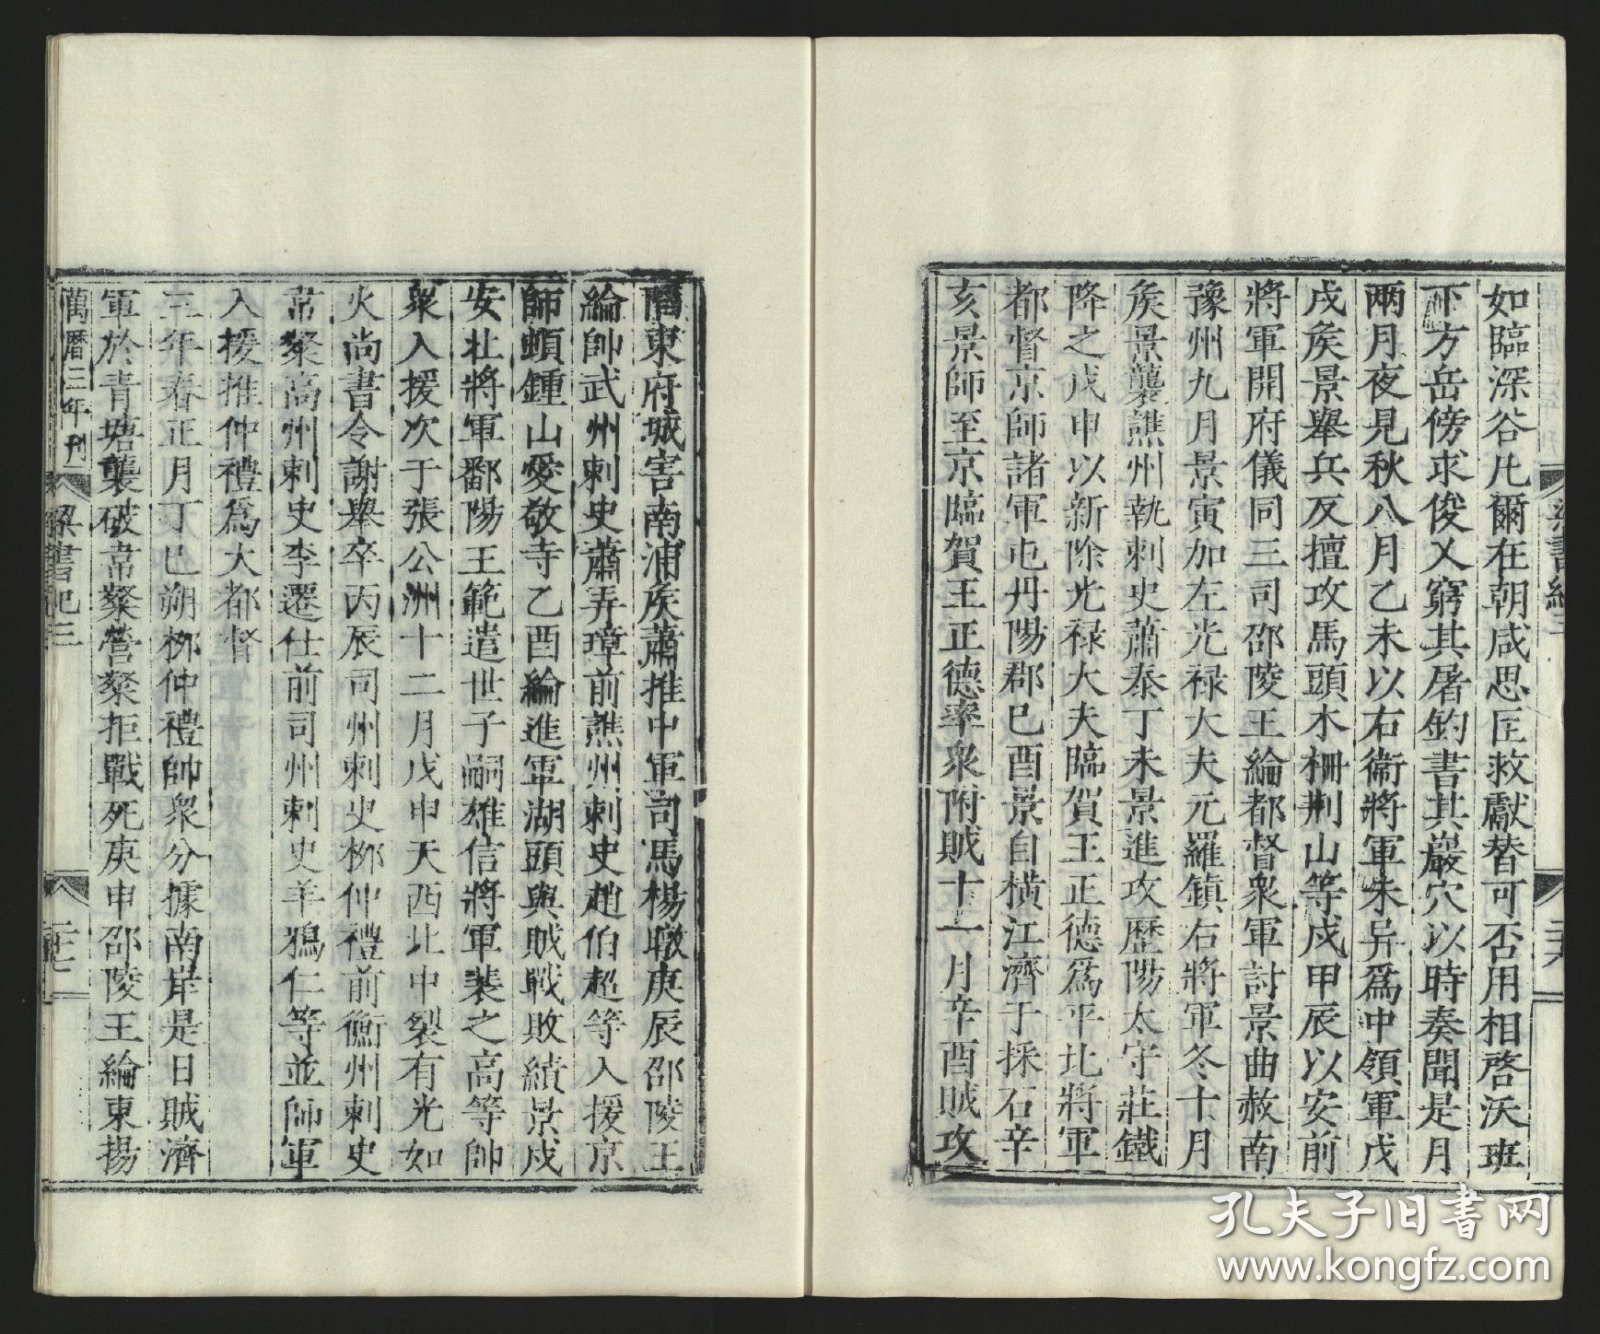 如臨深谷凡爾在朝咸思匡救獻替可否用相啓沃班
下方岳傍求俊乂窮其屠釣書其巖穴以時奏聞是月
兩月夜見秋八月乙未以右衞將軍朱异爲中領軍戊
戌矦景舉兵反擅攻馬頭木柵荆山等戍甲辰以安前
將軍開府儀同三司邵陵王綸都督衆軍討景曲赦南
豫州九月景寅加左光禄大夫元羅鎮右將軍冬十月
矦景襲譙州執刺史蕭泰丁未景進攻歷陽太守莊鐵
降之戊申以新除光禄大夫臨賀王正德爲平北將軍
都督京師諸軍屯丹陽郡己酉景自横江濟于採石辛
亥景師至京臨賀王正德率衆附賊十一月辛酉賊攻
陷東府城害南浦矦蕭推中軍司馬楊暾庚辰邵陵王
綸帥武州刺史蕭弄璋前譙州刺史趙伯超等入援京
師頓鍾山愛敬寺乙酉綸進軍湖頭與賊戰敗績景戌
安北將軍鄱陽王範遣世子嗣雄信將軍裴之高等帥
衆入援次于張公洲十二月戊申天西北中裂有光如
火尚書令謝舉卒丙辰司州刺史栁仲禮前衡州刺史
韋粲高州刺史李遷仕前司州刺史羊鴉仁等並帥軍
入援推仲禮爲大都督
三年春正月丁巳朔栁仲禮帥衆分據南岸是日賊濟
軍於青塘襲破韋粲營粲拒戰死庚申邵陵王綸東揚
萬曆三年刊
梁書紀三
孔夫子旧書网
www.kongfz.com